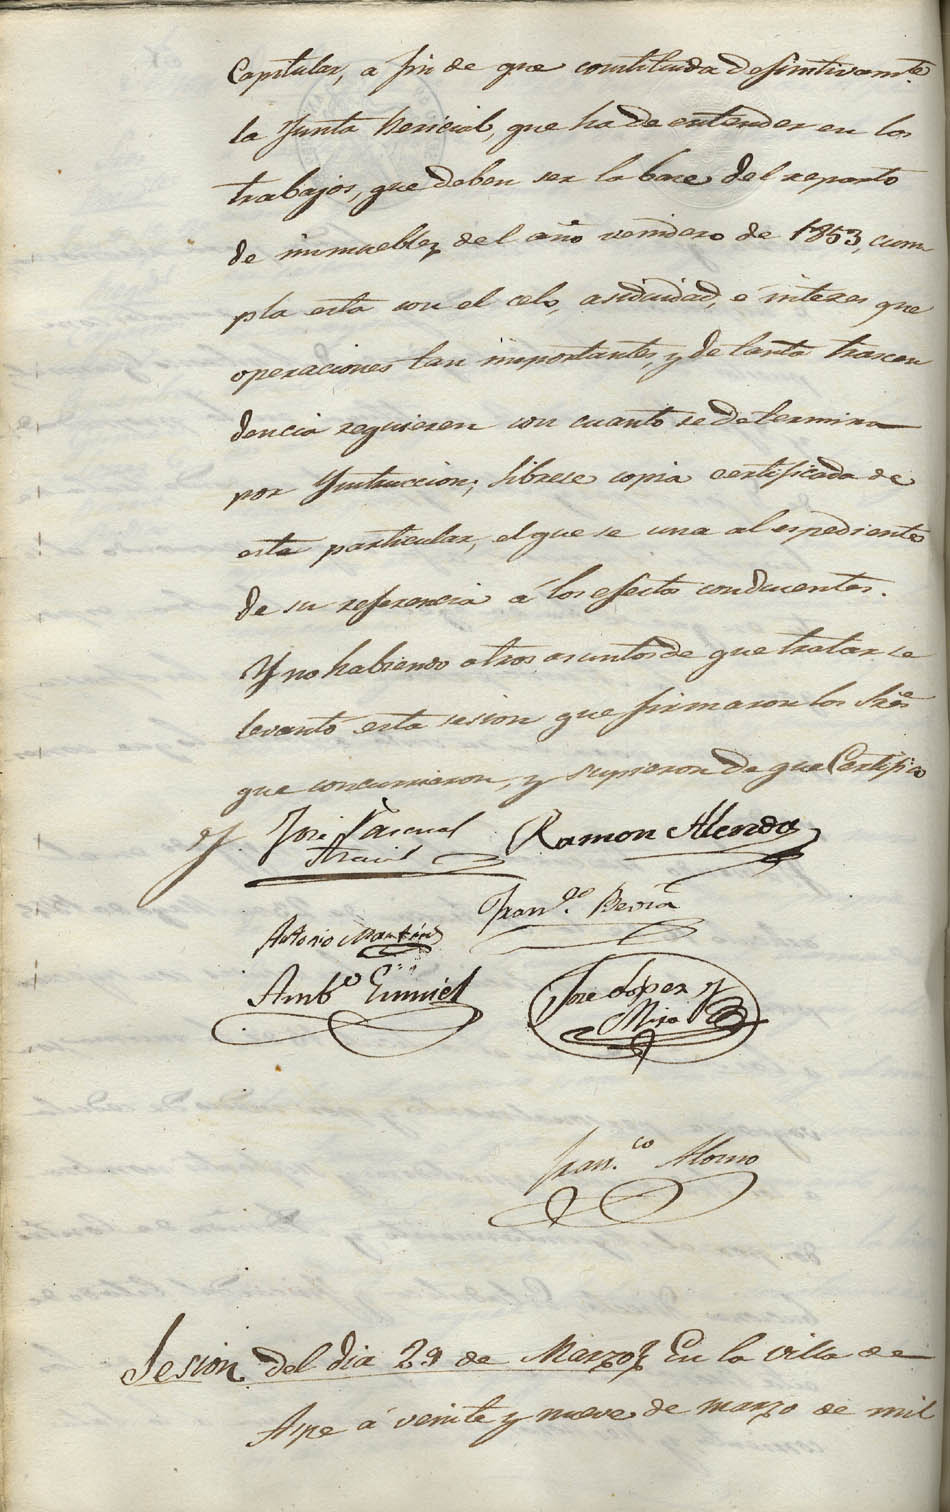 Capitular, a fin de que constituida definitivam.te
la Junta Pericial, que ha de entender en los
trabajos, que deben ser la base del reparto
de inmuebles del año venidero de 1853, cum
pla esta con el celo, asiduidad, é interes que
operaciones tan importantes, y de tanta trascen
dencia requieren con cuanto se determina
por Ynstruccion; librese copia certificada de
este particular, el que se una al espediente
de su referencia á los efectos conducentes.
Y no habiendo otros asuntos de que tratar se
levantó esta sesion que firmaron los Sres
que concurrieron, y supieron de que Certifico
José Pascual
Ramon Alenda
Fran.co Beviá
Antonio Martinez
Amb.o
José López y
Mira
Fran.co Alonso
Sesion del dia 29 de Marzo En la villa de
Aspe á veinte y nueve de marzo de mil